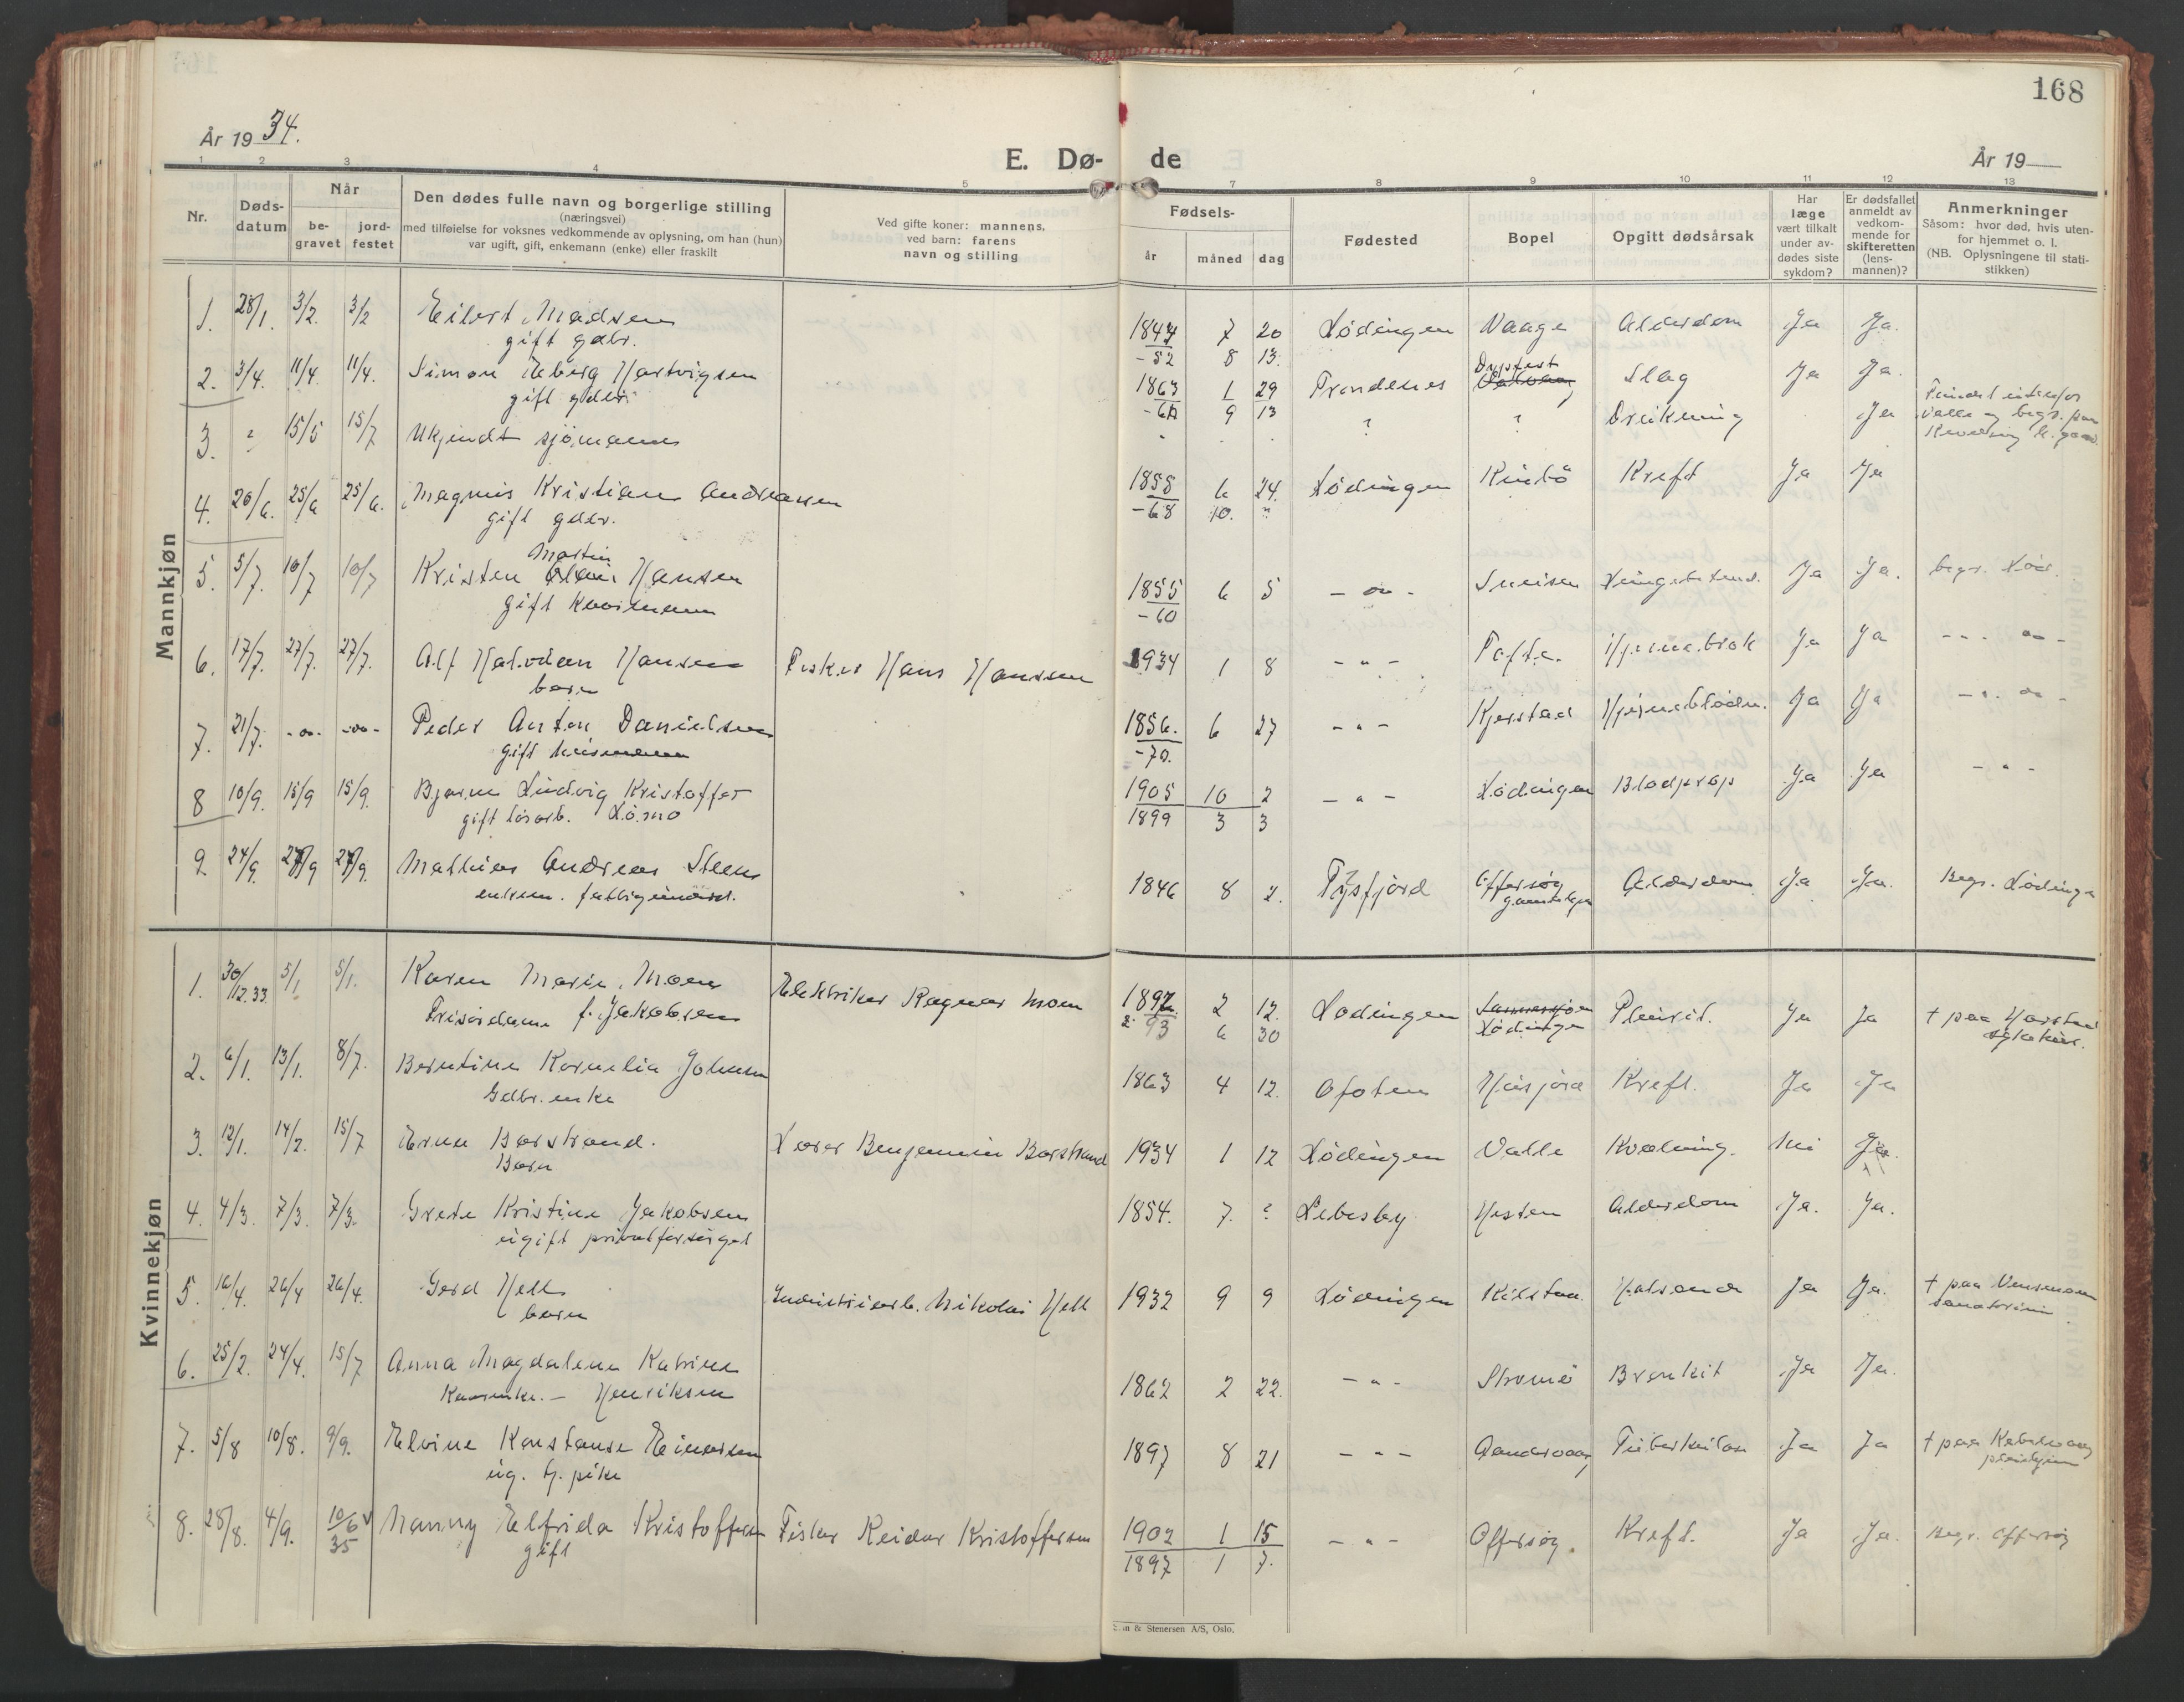 168
År 1934.
E. Dø- de
År 19
1 2 3 4 5 7 8 9 10 11 12 13
Nr.
Døds-
datum
Når
be-
gravet
jord-
festet
Den dødes fulle navn og borgerlige stilling
(næringsvei)
med tilføielse for voksnes vedkommende av oplysning, om han (hun)
var ugift, gift, enkemann (enke) eller fraskilt
Ved gifte koner: mannens,
ved barn: farens
navn og stilling
Fødsels-
år måned dag
Fødested
Bopel
Opgitt dødsårsak
Har
læge
vært tilkalt
under av-
dødes siste
sykdom?
Er dødsfallet
anmeldt av
vedkom-
mende for
skifteretten
(lens-
mannen)?
Anmerkninger
Såsom: hvor død, hvis uten-
for hjemmet o. l.
(NB. Oplysningene til stati-
stikken)
Mannkjøn
1. 28/1. 3/2. 3/2 Eilert Madsen 1847 7 20 Lødingen Vaage Alderdom Ja Ja.
gift gdbr. -52 8 13.
2. 3/4. 11/4. 11/4. Simon Eberg Hartvigsen 1863 1 29 Trondenes Slag Ja Ja.
gift gdbr. 9 13
3. ? 15/5 15/7 Ukjendt sjømann ? ? Drukning Ja
4. 20/6. 25/6 25/6. Magnus Kristian Andreassen 1858 6 24. Lødingen Rinbø Kreft Ja Ja
gift gdbr. -68 10. "
5. 5/7. 10/7 10/7 Kristen Martin Hansen 1855 6 5 - " - Ja Ja. begr. Lød.
gift -60
6. 17/7. 27/7. 27/7. Alf Halvdan Hansen Fisker Hans Hanssen 1934 1 8 - " - Ja Ja
barn
7. 21/7. - " - - " - Peder Anton Danielsen 1856. 6 27 - " - Kjerstad Ja Ja
gift husmann -70.
8 10/9. 15/9 15/9. Bjarne Ludvig Kristoffer 1905 10 2 - " - Lødingen Blodprop Ja Ja - " -
gift løsarb. Lømo 1899 3 3
9. 24/9. 27/9 27/9. Mathias Andreas Steen 1846 8 2. Tysfjord Offersøy Alderdom Ja Ja. Begr. Lødingen
enkem.
Kvinnekjøn
1. 30/12.33 5/1 5/1. Karen Marie Moen Elektriker Ragnar Moen 2 12. Lødingen Ja Ja + paa Harstad
Frisørdame f. Jakobsen 93 6 30 Lødingen sykehus.
2. 6/1. 13/1. 8/7. Berntine Kornelia Johnsen 1863 4 12. Ofoten Husjord Kreft. Ja Ja
Gdbr. enke
3. 12/1. 14/2. 15/7 Erna Barstrand. Lærer Benjamin Barstrand 1934 1 12 Lødingen Valle Kvælning. Nei Ja.
Barn
4. 4/3. 7/3. 7/3. Grete Kristine Jakobsen 1854. 7. ? Lebesby Hesten Alderdom Ja. Ja.
ugift privat forsørget
5. 16/4. 26/4 26/4. Gerd Hell Industriarb. Nikolai Hell 1932 9 9 Lødingen Ja Ja. + paa Vensmoen
barn sanatorium
6. 25/2. 24/4. 15/7 Anna Magdalena Katrine 1862 2 22. - " - Bronkit Ja Ja.
Henriksen
7. 5/8 10/8. 9/9. Elvine Konstanse Einarsen 1897 8 21 - " - Tuberkulose Ja Ja + paa Kabelvaag
ug. hj. pike pleiehjem
8. 28/8. 4/9. 10/6 35 Nanny Elfrida Kristoffersen Fisker Reidar Kristoffersen 1902 1 15 - " - Offersøy. Kreft. Ja Ja. Begr. Offersøy
gift 1897 1 7.
& Stenersen A/S, Oslo.